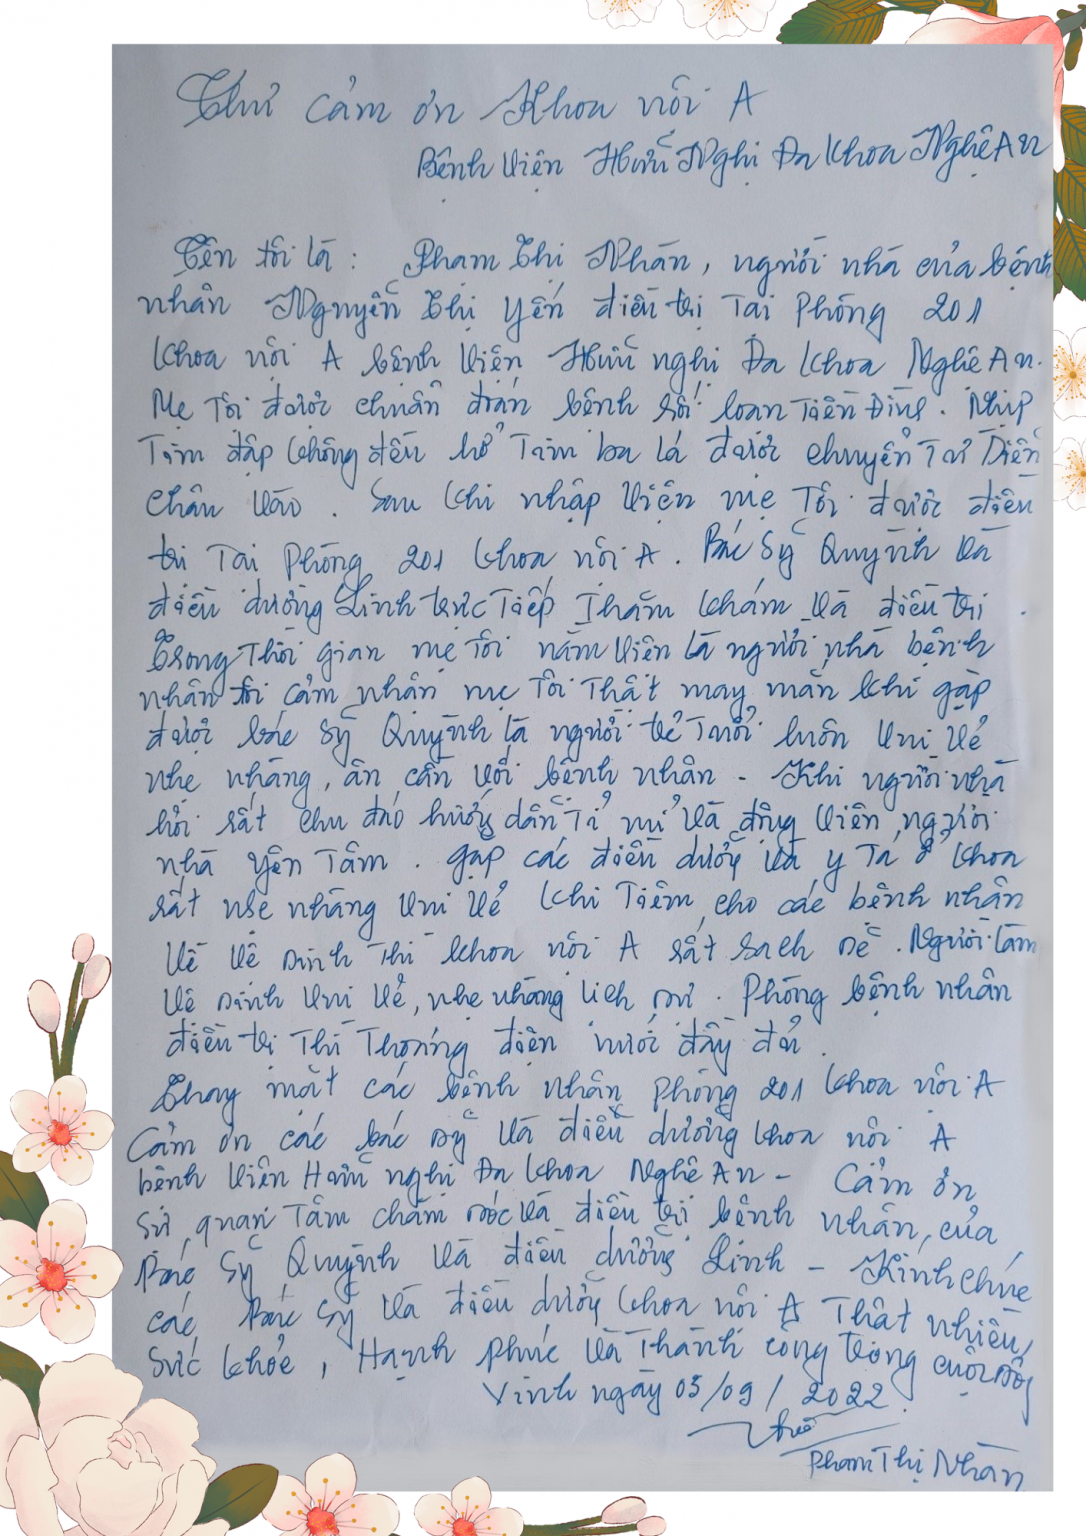 Thư cảm ơn Khoa nội A
Bệnh Viện Hữu Nghị Đa Khoa Nghệ An
Tên tôi là : Phạm Thị Nhàn, người nhà của bệnh
nhân Nguyễn Thị Yến điều trị Tại Phòng 201
Khoa nội A bệnh Viện Hữu nghị Đa Khoa Nghệ An.
Mẹ Tôi được chuẩn đoán bệnh rối loạn Tiền Đình. Nhịp
Tim đập không đều hở Tim ba lá được chuyển Từ Diễn
Châu Vào. Sau khi nhập Viện mẹ Tôi được điều
trị Tại Phòng 201 khoa nội A. Bác Sỹ Quỳnh Và
điều dưỡng Linh trực Tiếp Thăm khám Và điều trị.
Trong Thời gian mẹ Tôi nằm Viện là người nhà bệnh
nhân tôi cảm nhận mẹ Tôi Thật may mắn khi gặp
được bác Sỹ Quỳnh là người trẻ Tuổi luôn Vui Vẻ
nhẹ nhàng, ân cần Với bệnh nhân - Khi người nhà
hỏi rất chu đáo hướng dẫn Tỉ mỉ Và động Viên người
nhà yên Tâm. gặp các điều dưỡng Và y Tá ở khoa
rất nhẹ nhàng Vui Vẻ khi Tiêm cho các bệnh nhân
Về Vệ sinh Thì khoa nội A rất sạch sẽ. Người làm
Vệ sinh Vui Vẻ, nhẹ nhàng lịch sự. Phòng bệnh nhân
điều trị Thì Thoáng điện nước đầy đủ.
Thay mặt các bệnh nhân phòng 201 khoa nội A
Cảm ơn các bác sỹ Và điều dưỡng khoa nội A
bệnh Viện Hữu nghị Đa khoa Nghệ An - Cảm ơn
Sự quan Tâm chăm sóc Và điều trị bệnh nhân, của
Bác Sỹ Quỳnh Và điều dưỡng Linh - Kính chúc
các Bác Sỹ Và điều dưỡng khoa nội A Thật nhiều
Sức khỏe, Hạnh phúc Và Thành công trong cuộc sống
Vinh ngày 05/09/2022
Phạm Thị Nhàn